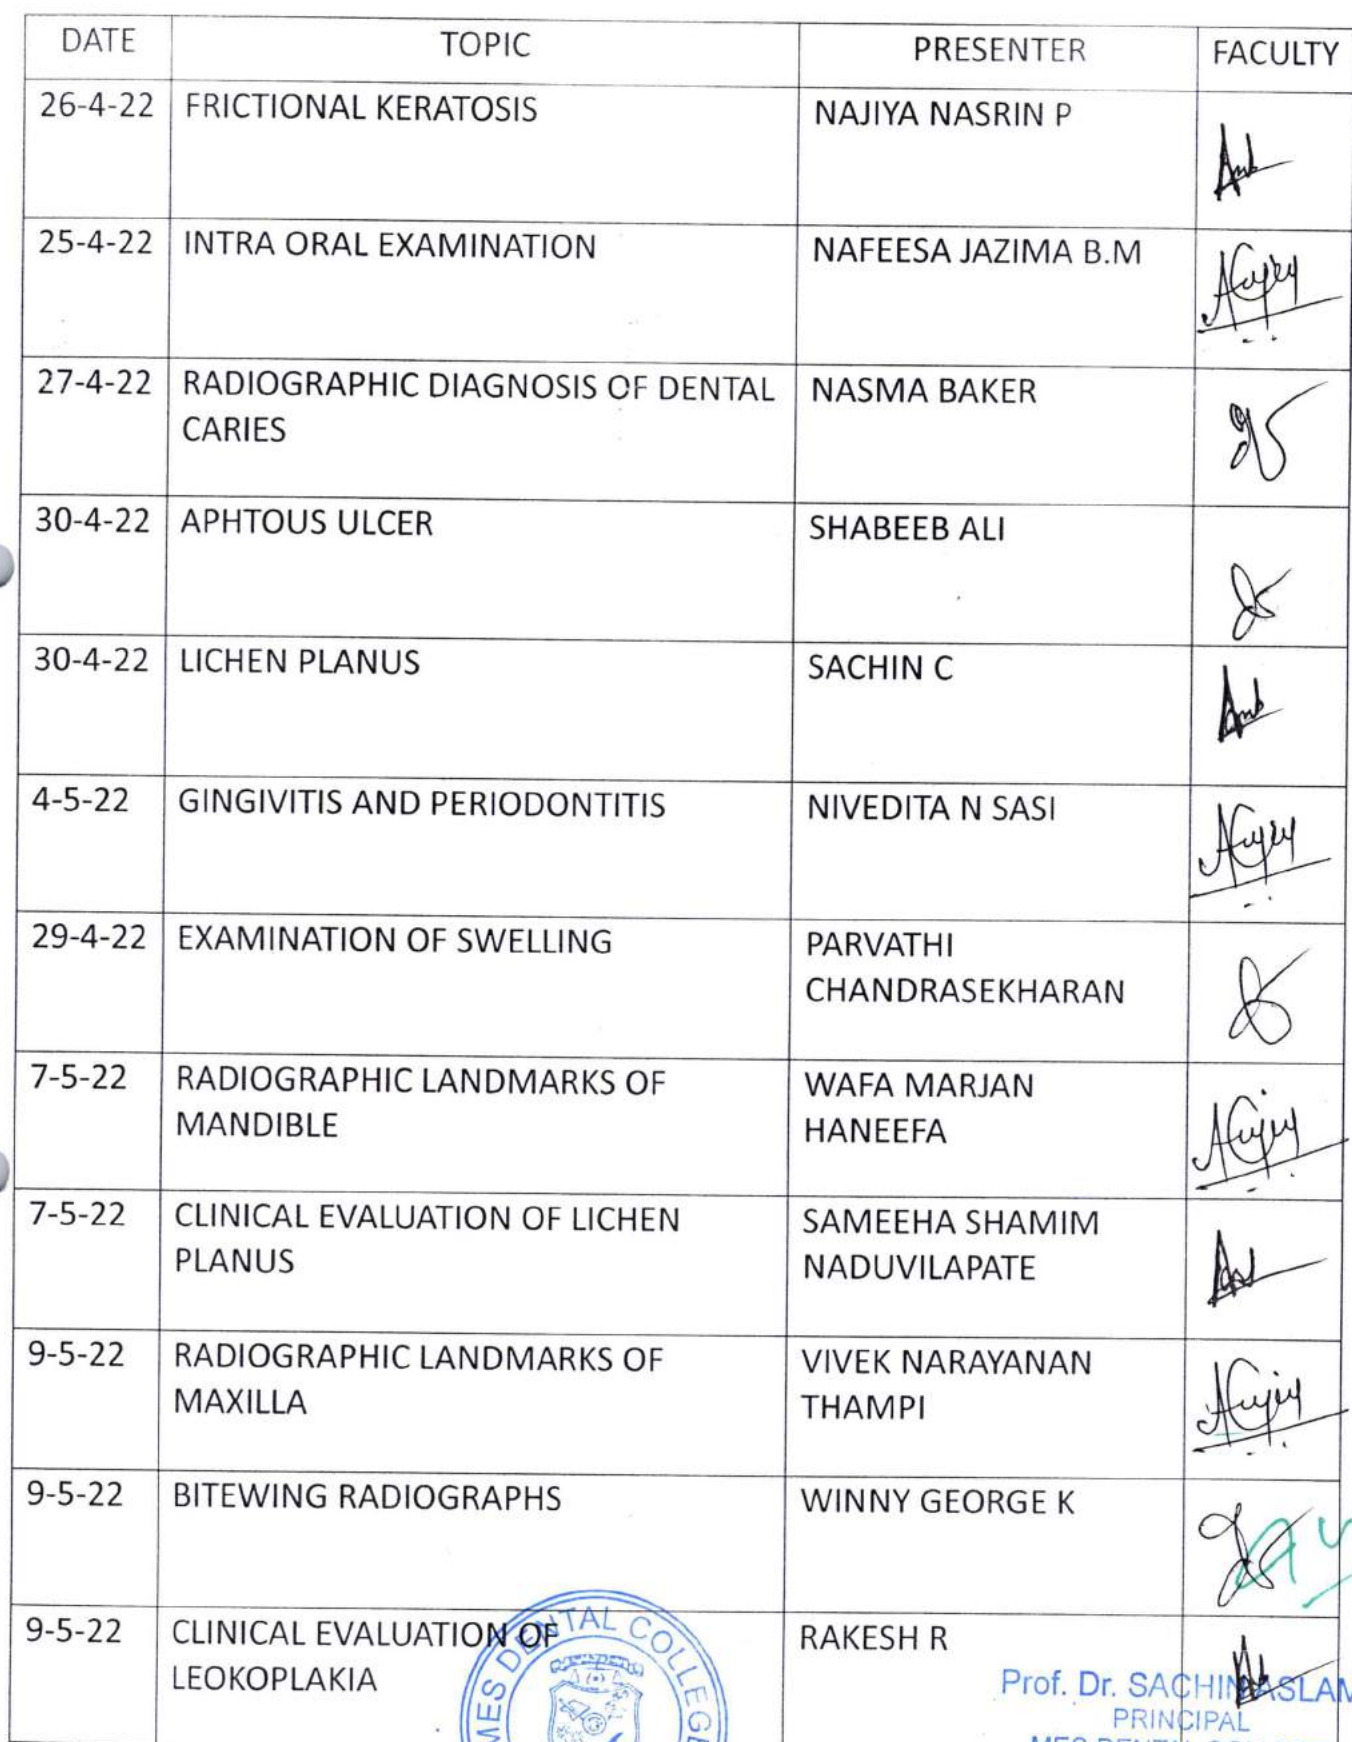 DATE TOPIC PRESENTER FACULTY
26-4-22 FRICTIONAL KERATOSIS NAJIYA NASRIN P
25-4-22 INTRA ORAL EXAMINATION NAFEESA JAZIMA B.M
27-4-22 RADIOGRAPHIC DIAGNOSIS OF DENTAL NASMA BAKER
CARIES
30-4-22 APHTOUS ULCER SHABEEB ALI
30-4-22 LICHEN PLANUS SACHIN C
4-5-22 GINGIVITIS AND PERIODONTITIS NIVEDITA N SASI
29-4-22 EXAMINATION OF SWELLING PARVATHI
CHANDRASEKHARAN
7-5-22 RADIOGRAPHIC LANDMARKS OF WAFA MARJAN
MANDIBLE HANEEFA
7-5-22 CLINICAL EVALUATION OF LICHEN SAMEEHA SHAMIM
PLANUS NADUVILAPATE
9-5-22 RADIOGRAPHIC LANDMARKS OF VIVEK NARAYANAN
MAXILLA THAMPI
9-5-22 BITEWING RADIOGRAPHS WINNY GEORGE K
9-5-22 CLINICAL EVALUATION OF RAKESH R
LEOKOPLAKIA
MES DENTAL COLLEGE
Prof. Dr. SACHIN ASLAM
PRINCIPAL
MES DENTAL